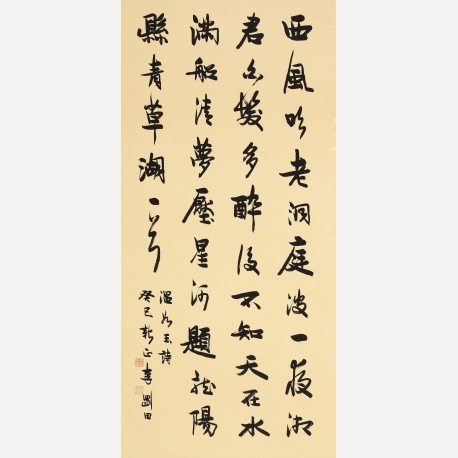 西風吹老洞庭波一夜湘
君白髮多醉後不知天在水
滿船清夢壓星河題龍陽
縣青草湖一首
溫如玉詩
癸巳新正李剛田